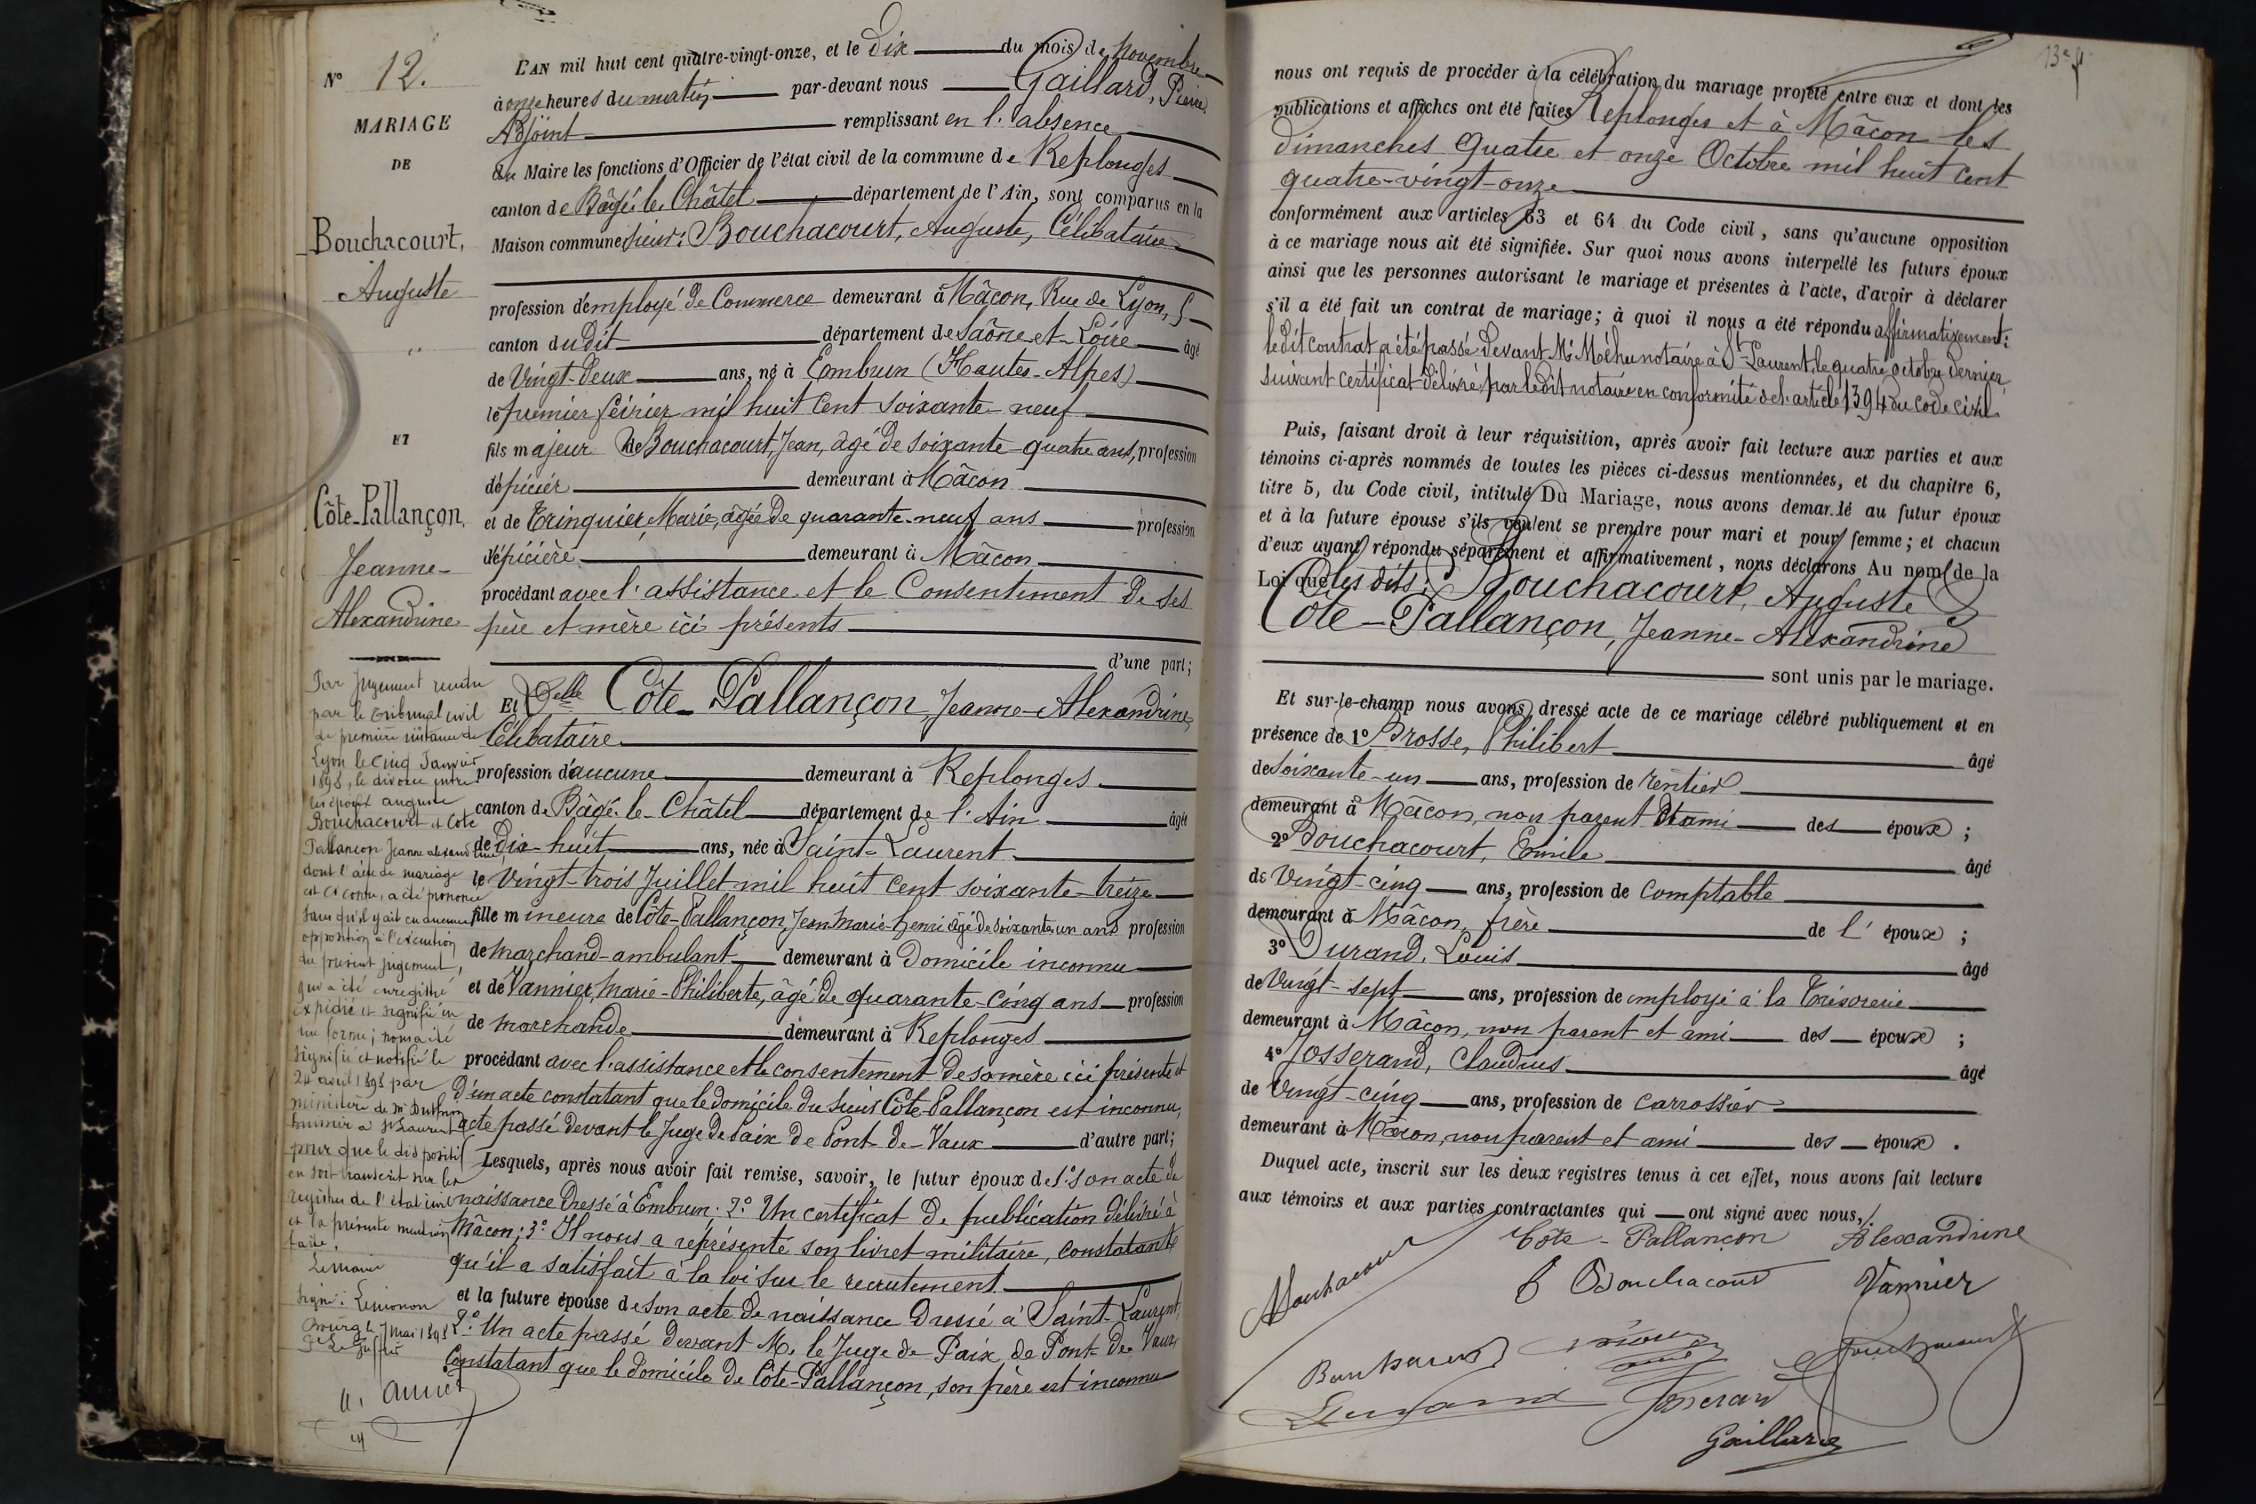 N° 12.
MARIAGE
DE
Bouchacourt,
Auguste
ET
Côte-Pallançon,
Jeanne-
Alexandrine
Par jugement rendu
par le tribunal civil
de première instance de
Lyon le cinq Janvier
1898, le divorce entre
les époux auguste
Bouchacourt et Cote
Pallançon Jeanne alexandrine,
dont l'acte de mariage
est ci contre, a été prononcé
sans qu'il y ait eu aucune
opposition à l'exécution
du présent jugement,
qui a été enregistré
expédié et signifié en
due forme; nous a été
signifié et notifié le
24 avril 1898 par
ministère de Mr
huissier à St Laurent
pour que le dispositif
en soit transcrit sur les
registres de l'état civil
et la présente mention
faite.
Le Maire
Signé: Lemonon
Bourg le 7 Mai 1898
Le Greffier
L'AN mil huit cent quatre-vingt-onze, et le dix du mois de Novembre
à onze heures du matin par-devant nous Gaillard, Pierre
Adjoint remplissant en l'absence
du Maire les fonctions d'Officier de l'état civil de la commune de Replonges
canton de Bâgé-le-Châtel département de l'Ain, sont comparus en la
Maison commune sieur: Bouchacourt, Auguste, Célibataire
profession d'employé de Commerce demeurant à Mâcon, Rue de Lyon, 5
canton dudit département de Saône-et-Loire âgé
de Vingt-deux ans, né à Embrun (Hautes-Alpes)
le premier février mil huit cent soixante-neuf
fils majeur de Bouchacourt, Jean, âgé de soixante-quatre ans, profession
d'épicier demeurant à Mâcon
et de Tringuier, Marie, âgée de quarante-neuf ans profession
d'épicière demeurant à Mâcon
procédant avec l'assistance et le Consentement de ses
père et mère ici présents
d'une part;
Et Delle Côte-Pallançon, Jeanne-Alexandrine,
Célibataire
profession d'aucune demeurant à Replonges
canton de Bâgé-le-Châtel département de l'Ain âgée
de Dix-huit ans, née à Saint-Laurent
le Vingt-trois Juillet mil huit cent soixante-treize
fille mineure de Côte-Pallançon, Jean Marie-henri âgé de soixante un ans profession
de marchand-ambulant demeurant à domicile inconnu
et de Vannier, Marie-Philiberte, âgé de quarante-cinq ans profession
de marchande demeurant à Replonges
procédant avec l'assistance et le consentement de sa mère ici présente et
d'un acte constatant que le domicile du sieur Côte-Pallançon est inconnu,
acte passé devant le Juge de Paix de Pont-de-Vaux d'autre part;
Lesquels, après nous avoir fait remise, savoir, le futur époux de 1° son acte de
naissance dressé à Embrun; 2° Un certificat de publication délivré à
Mâcon; 3° Il nous a représenté son livret militaire, constatant
qu'il a satisfait à la loi sur le recrutement
et la future épouse de son acte de naissance dressé à Saint-Laurent,
2° Un acte passé devant M. le Juge de Paix de Pont-de-Vaux
Constatant que le domicile de Côte-Pallançon, son père est inconnu
nous ont requis de procéder à la célébration du mariage projeté entre eux et dont les
publications et affiches ont été faites Replonges et à Mâcon les
dimanches Quatre et onze Octobre mil huit cent
quatre-vingt-onze
conformément aux articles 63 et 64 du Code civil, sans qu'aucune opposition
à ce mariage nous ait été signifiée. Sur quoi nous avons interpellé les futurs époux
ainsi que les personnes autorisant le mariage et présentes à l'acte, d'avoir à déclarer
s'il a été fait un contrat de mariage; à quoi il nous a été répondu affirmativement:
ledit contrat a été passé devant Me Méhu notaire à St-Laurent, le quatre octobre dernier,
suivant certificat délivré par ledit notaire en conformité de l'article 1394 du code civil.
Puis, faisant droit à leur réquisition, après avoir fait lecture aux parties et aux
témoins ci-après nommés de toutes les pièces ci-dessus mentionnées, et du chapitre 6,
titre 5, du Code civil, intitulé Du Mariage, nous avons demandé au futur époux
et à la future épouse s'ils veulent se prendre pour mari et pour femme; et chacun
d'eux ayant répondu séparément et affirmativement, nous déclarons Au nom de la
Loi que les dits: Bouchacourt, Auguste &
Côte-Pallançon, Jeanne-Alexandrine
sont unis par le mariage.
Et sur-le-champ nous avons dressé acte de ce mariage célébré publiquement et en
présence de 1° Brosse, Philibert âgé
de soixante-un ans, profession de rentier
demeurant à Mâcon, non parent et ami des époux;
2° Bouchacourt, Emile âgé
de vingt-cinq ans, profession de comptable
demeurant à Mâcon, frère de l'époux;
3° Durand, Louis âgé
de Vingt-sept ans, profession de employé à la Trésorerie
demeurant à Mâcon, non parent et ami des époux;
4° Josserand, Claudius âgé
de Vingt-cinq ans, profession de carrossier
demeurant à Mâcon, non parent et ami des époux.
Duquel acte, inscrit sur les deux registres tenus à cet effet, nous avons fait lecture
aux témoins et aux parties contractantes qui ont signé avec nous,
Côte-Pallançon Alexandrine
Bouchacourt E Bouchacourt Vannier
Durand Josserand
Gaillard